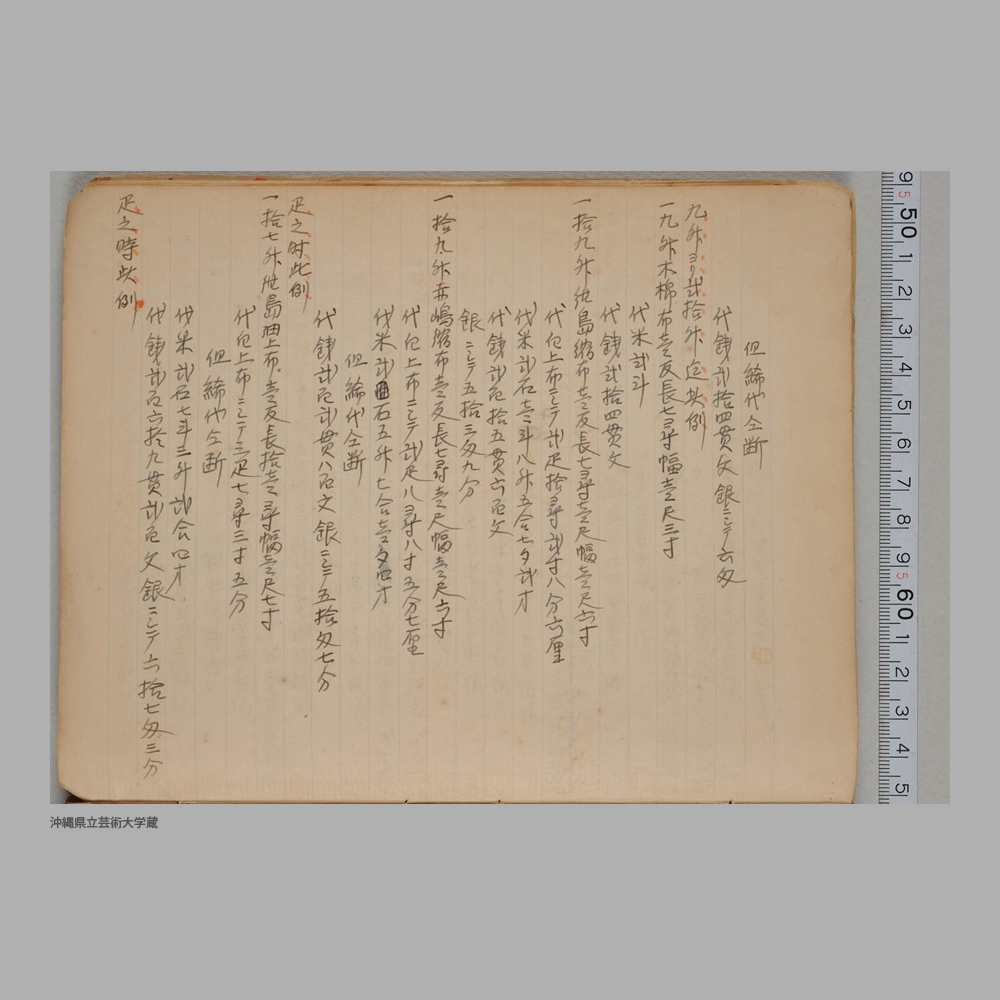 但綿代仝断
代銭弐拾四貫文銀ニシテ六匁
九舛ヨリ弐拾舛迄此例
一九舛木棉布壱反長七尋幅壱尺三寸
代米弐斗
代銭弐拾四貫文
一拾九舛紺島縮布壱反長七尋壱尺幅壱尺六寸
代白上布ニシテ弐疋拾尋弐寸八分六厘
代米弐石壱斗八舛五合七夕弐才
代銭弐百拾五貫六百文
銀ニシテ五拾三匁九分
一拾九舛赤嶋縮布壱反長七尋壱尺幅壱尺六寸
代白上布ニシテ弐疋八尋八寸五分七厘
代米弐石五舛七合壱夕四才
但綿代仝断
代銭弐百弐貫八百文銀ニシテ五拾匁七分
疋之時此例
一拾七舛紺島細上布壱反長拾壱尋幅壱尺七寸
代白上布ニシテ三疋七尋三寸五分
但綿代仝断
代米弐石七斗三舛弐合四才
代銭弐百六拾九貫弐百文銀ニシテ六拾七匁三分
疋之時此例
9 5 50 1 2 3 4 5 6 7 8 9 5 60 1 2 3 4 5
沖縄県立芸術大学蔵